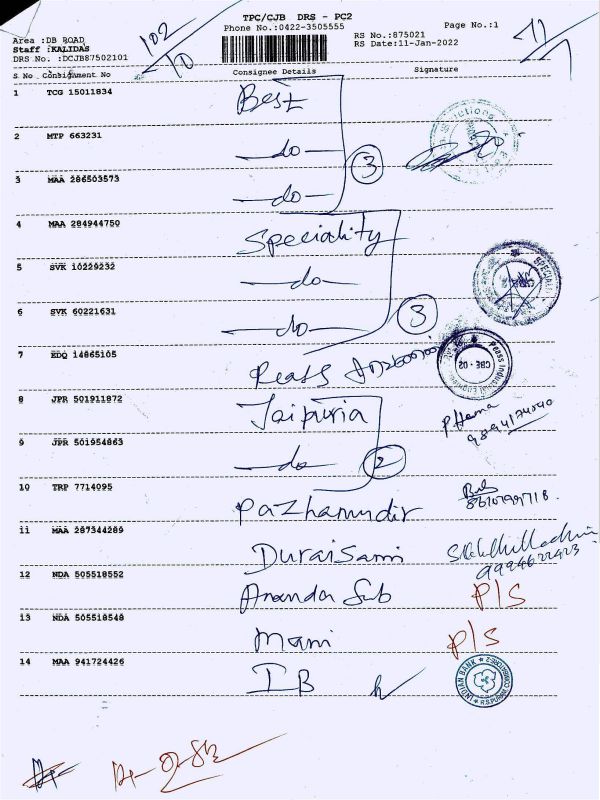 TPC/CJB DRS - PC2
Phone No.:0422-3505555
Page No.:1
Area :DB ROAD
Staff :KALIDAS
DRS No. :DCJB87502101
RS No.:875021
RS Date:11-Jan-2022
102
10
11
S No Consignment No Consignee Details Signature
1 TCG 15011834 Best
2 MTP 663231 —do—
3 MAA 286503573 —do—
3
4 MAA 284944750 Speciality
5 SVK 10229232 —do—
6 SVK 60221631 —do—
3
7 EDQ 14865105 Peass
CBE - 02
8 JPR 501911872 Jaipuria
P Hema
9894174040
9 JPR 501954863 —do—
2
10 TRP 7714095 Pazhamudir
11 MAA 287344289 Duraisami
9994622423
12 NDA 505518552 Ananda Sub P/S
13 NDA 505518548 Mani P/S
14 MAA 941724426 IB
INDIAN BANK
R.S.PURAM